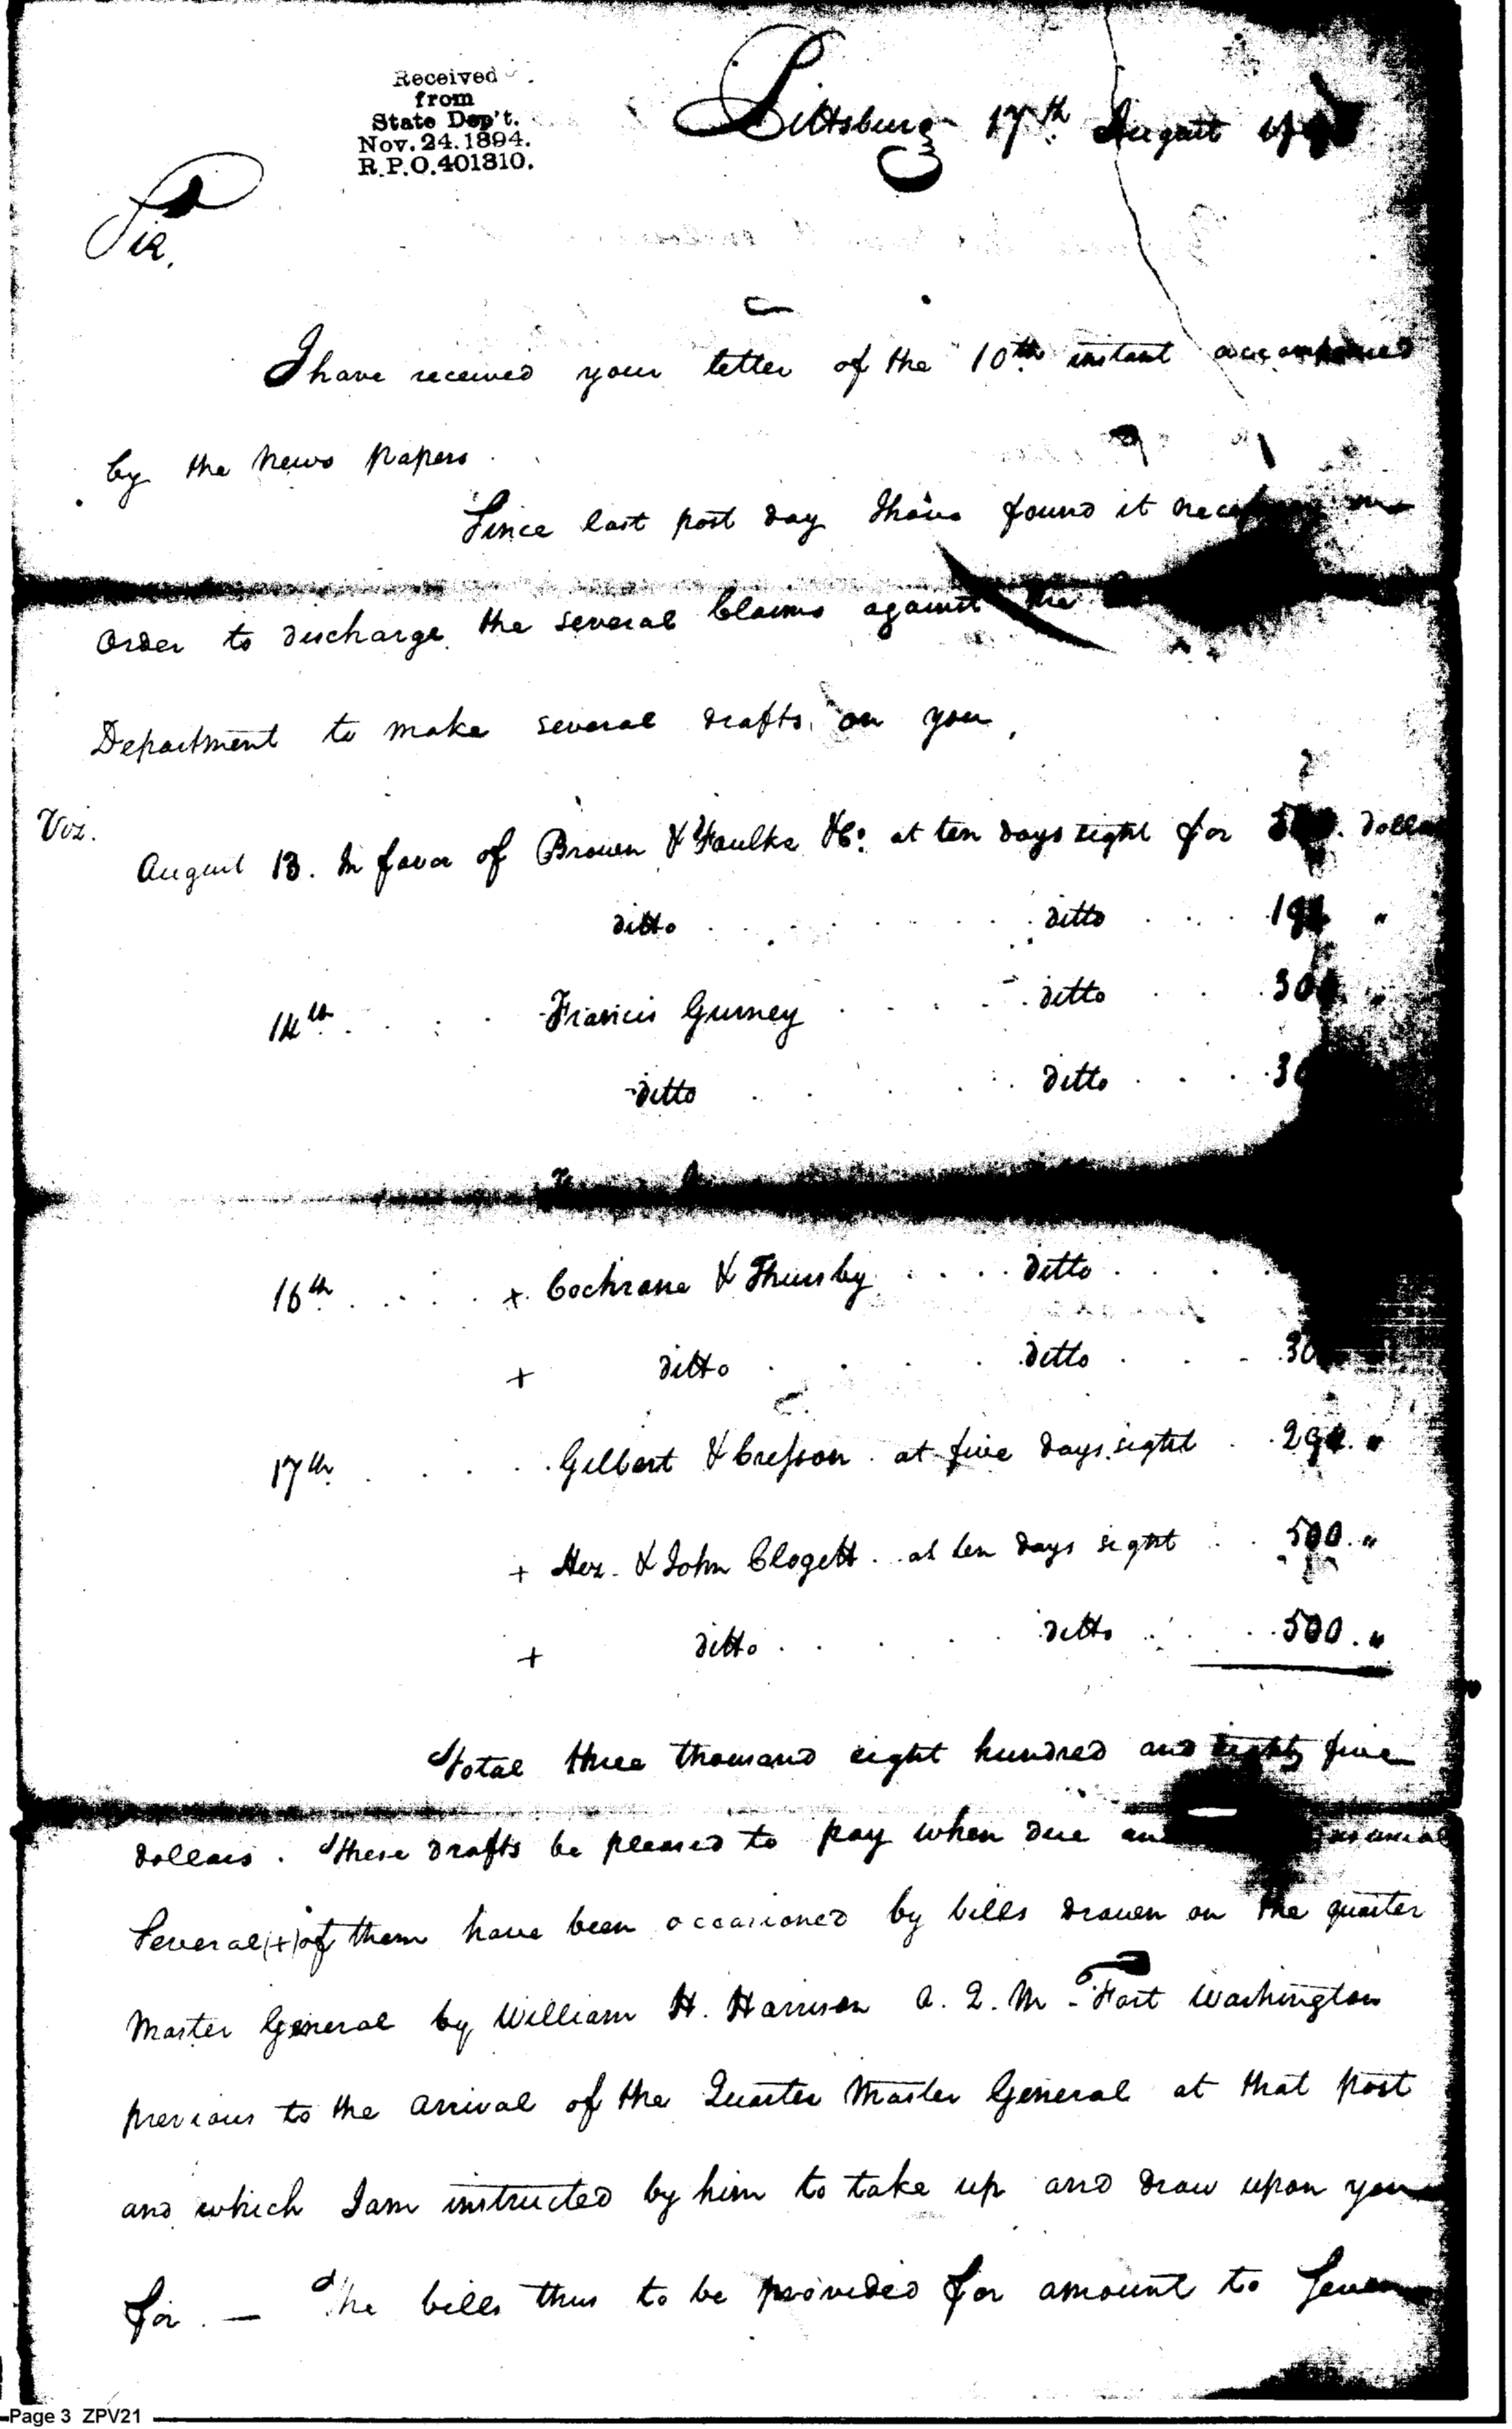 Received
from
State Dep't.
Nov. 24. 1894.
R.P.O. 401310.
Pittsburg 17th August
Sir.
I have received your letter of the 10th instant accompanied
by the News Papers.
Since last post day I have found it necessary in
order to discharge the several Claims against the
Department to make several drafts on you,
Viz.
August 13. In favor of Brown & Foulke & Co. at ten days sight for dollars
ditto . . . ditto . . . "
14th . . . Francis Gurney . . . ditto . . . "
ditto . . . ditto . . .
16th . . . + Cochrane & Thursby . . . ditto . . .
+ ditto . . . ditto . . .
17th . . . Gilbert & Cresson . at five days sight . . "
+ Hez. & John Clogett . at ten days sight . . 500. "
+ ditto . . . ditto . . . 500. "
Total three thousand eight hundred and eighty five
dollars . These drafts be pleased to pay when due as usual
Several (+) of them have been occasioned by bills drawn on the quarter
Master General by William H. Harrison A. Q. M - Fort Washington
previous to the arrival of the Quarter Master General at that post
and which I am instructed by him to take up and draw upon you
for . — The bills thus to be provided for amount to Seven
Page 3 ZPV21